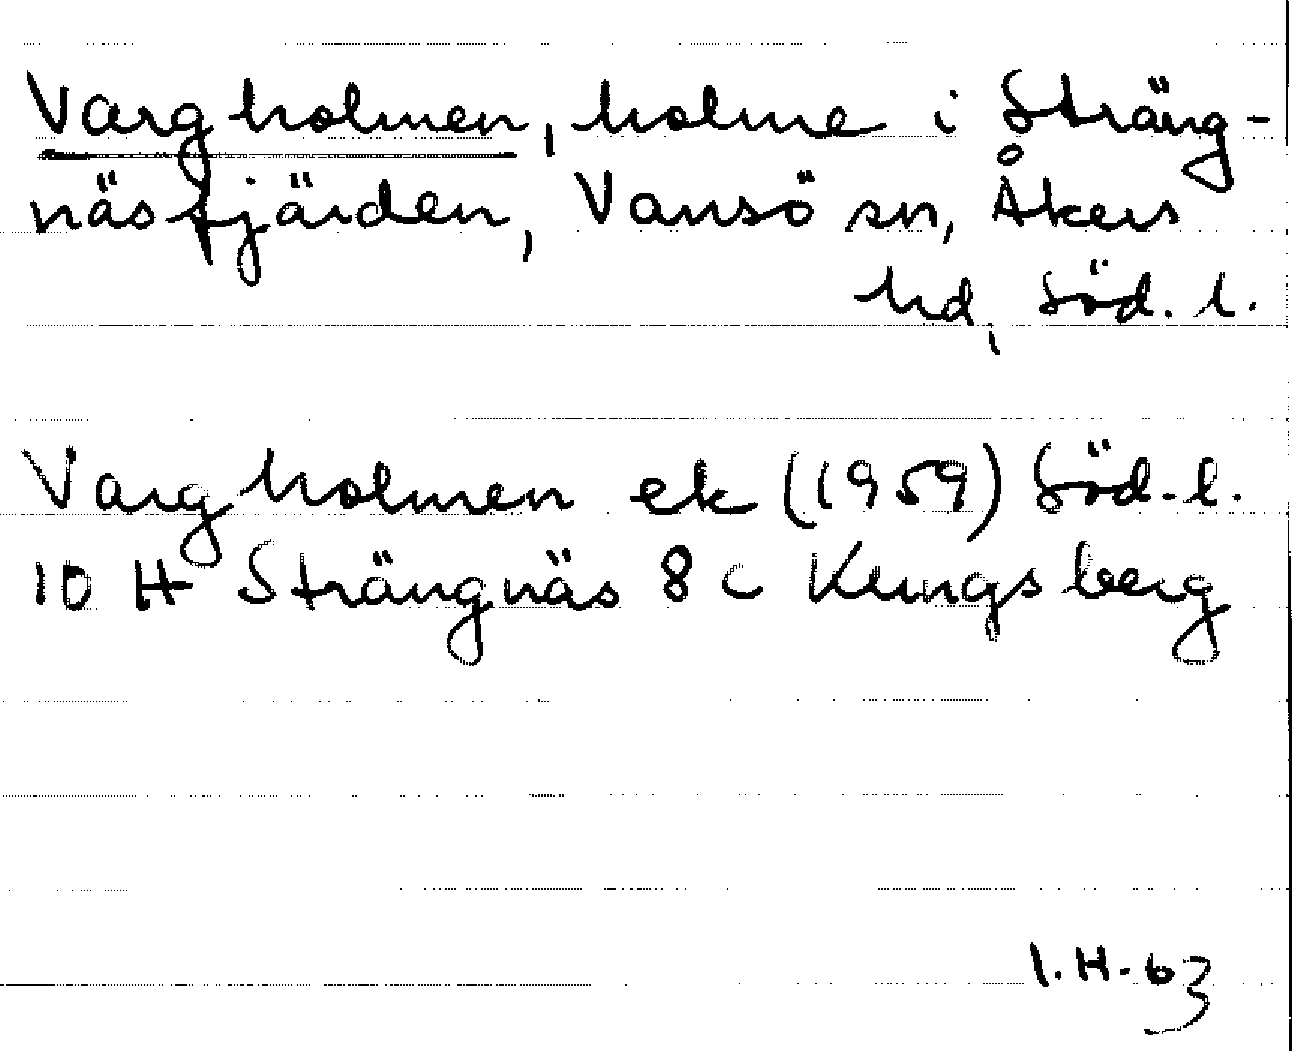 Vargholmen, holme i Sträng-
näsfjärden, Vansö sn, Åkers
hd, Söd. l.
Vargholmen ek (1959) Söd. l.
10 H Strängnäs 8 c Kungsberg
I.H. 63